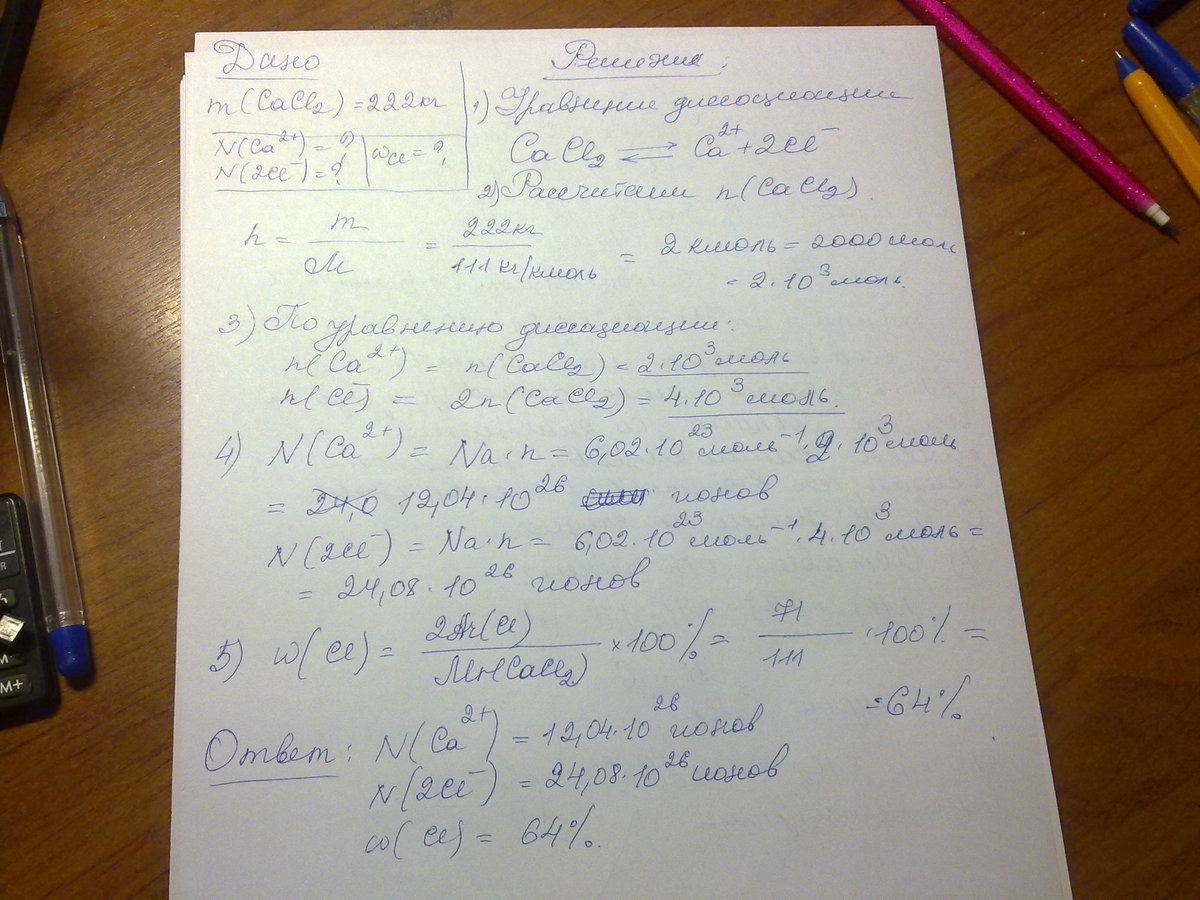 Дано
Решения:
m(CaCl2) = 222кг
N(Ca²⁺) = ?
N(2Cl⁻) = ?
ωCl = ?
1) Уравнение диссоциации
CaCl2 ⇄ Ca²⁺ + 2Cl⁻
2) Рассчитаем n(CaCl2).
n = m/M = 222кг/111 кг/кмоль = 2 кмоль = 2000 моль
= 2·10³ моль.
3) По уравнению диссациации:
n(Ca²⁺) = n(CaCl2) = 2·10³ моль
n(Cl⁻) = 2n(CaCl2) = 4·10³ моль.
4) N(Ca²⁺) = Na·n = 6,02·10²³ моль⁻¹·2·10³ моль
= 24,0 12,04·10²⁶ ионов
N(2Cl⁻) = Na·n = 6,02·10²³ моль⁻¹·4·10³ моль =
= 24,08·10²⁶ ионов
5) ω(Cl) = 2Ar(Cl)/Mr(CaCl2) ×100% = 71/111 ·100% =
= 64%
Ответ: N(Ca²⁺) = 12,04·10²⁶ ионов
N(2Cl⁻) = 24,08·10²⁶ ионов
ω(Cl) = 64%.
M+